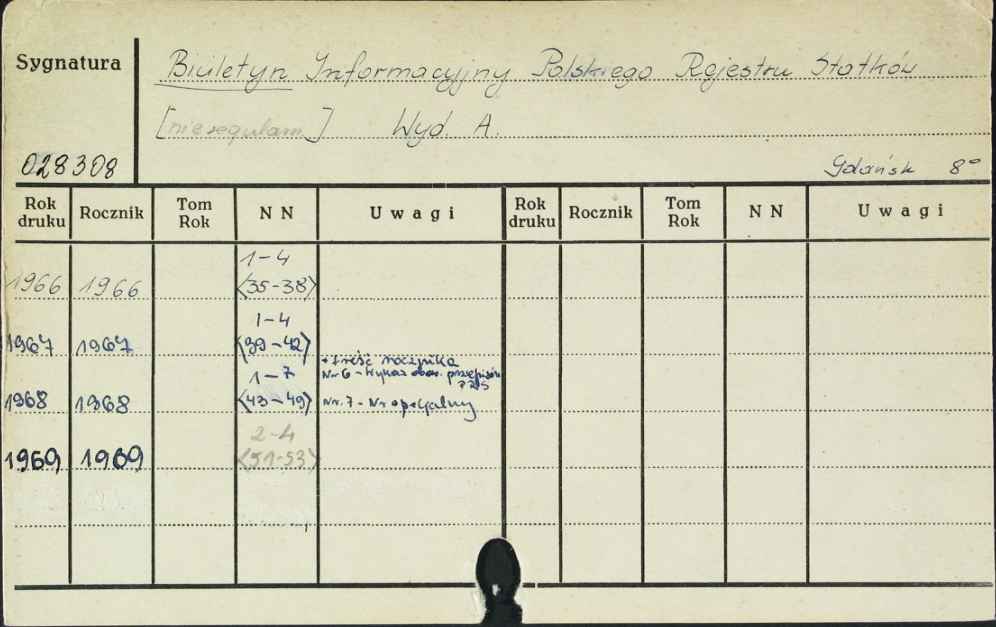 Sygnatura
Biuletyn Informacyjny Polskiego Rejestru Statków
[nieregularn.] Wyd. A.
028308
Gdańsk 8°
Rok druku Rocznik Tom Rok N N Uwagi Rok druku Rocznik Tom Rok N N Uwagi
1966 1966 1-4 <35-38>
1967 1967 1-4 <39-42>
+ treść rocznika
1968 1968 1-7 <43-49> Nr 6 - Wykaz obow. przepisów PRS
Nr. 7 - Nr specjalny
1969 1969 2-4 <51-53>